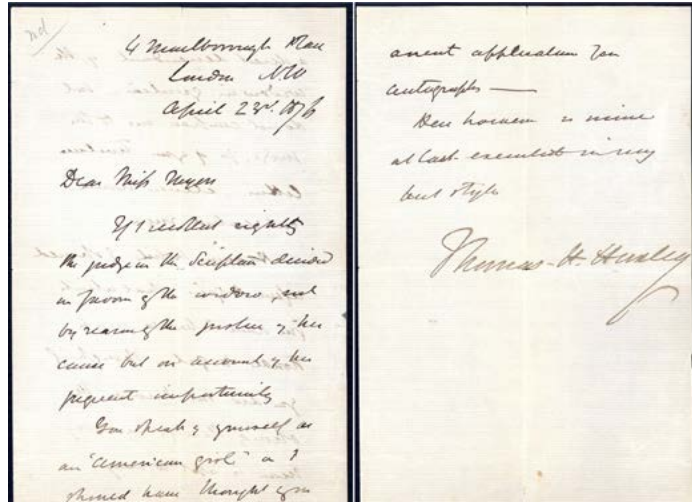 nd
4 Marlborough Place
London NW
April 23rd. 1876
Dear Miss Meyers
If I recollect rightly
the judge in the Scripture decided
in favour of the widow, not
by reason of the justice of her
cause but on account of her
frequent importunity
You speak of yourself as
an "American girl" as I
should have thought you
anent application for
autographs —
Here however is mine
at last executed in my
best style
Thomas H. Huxley